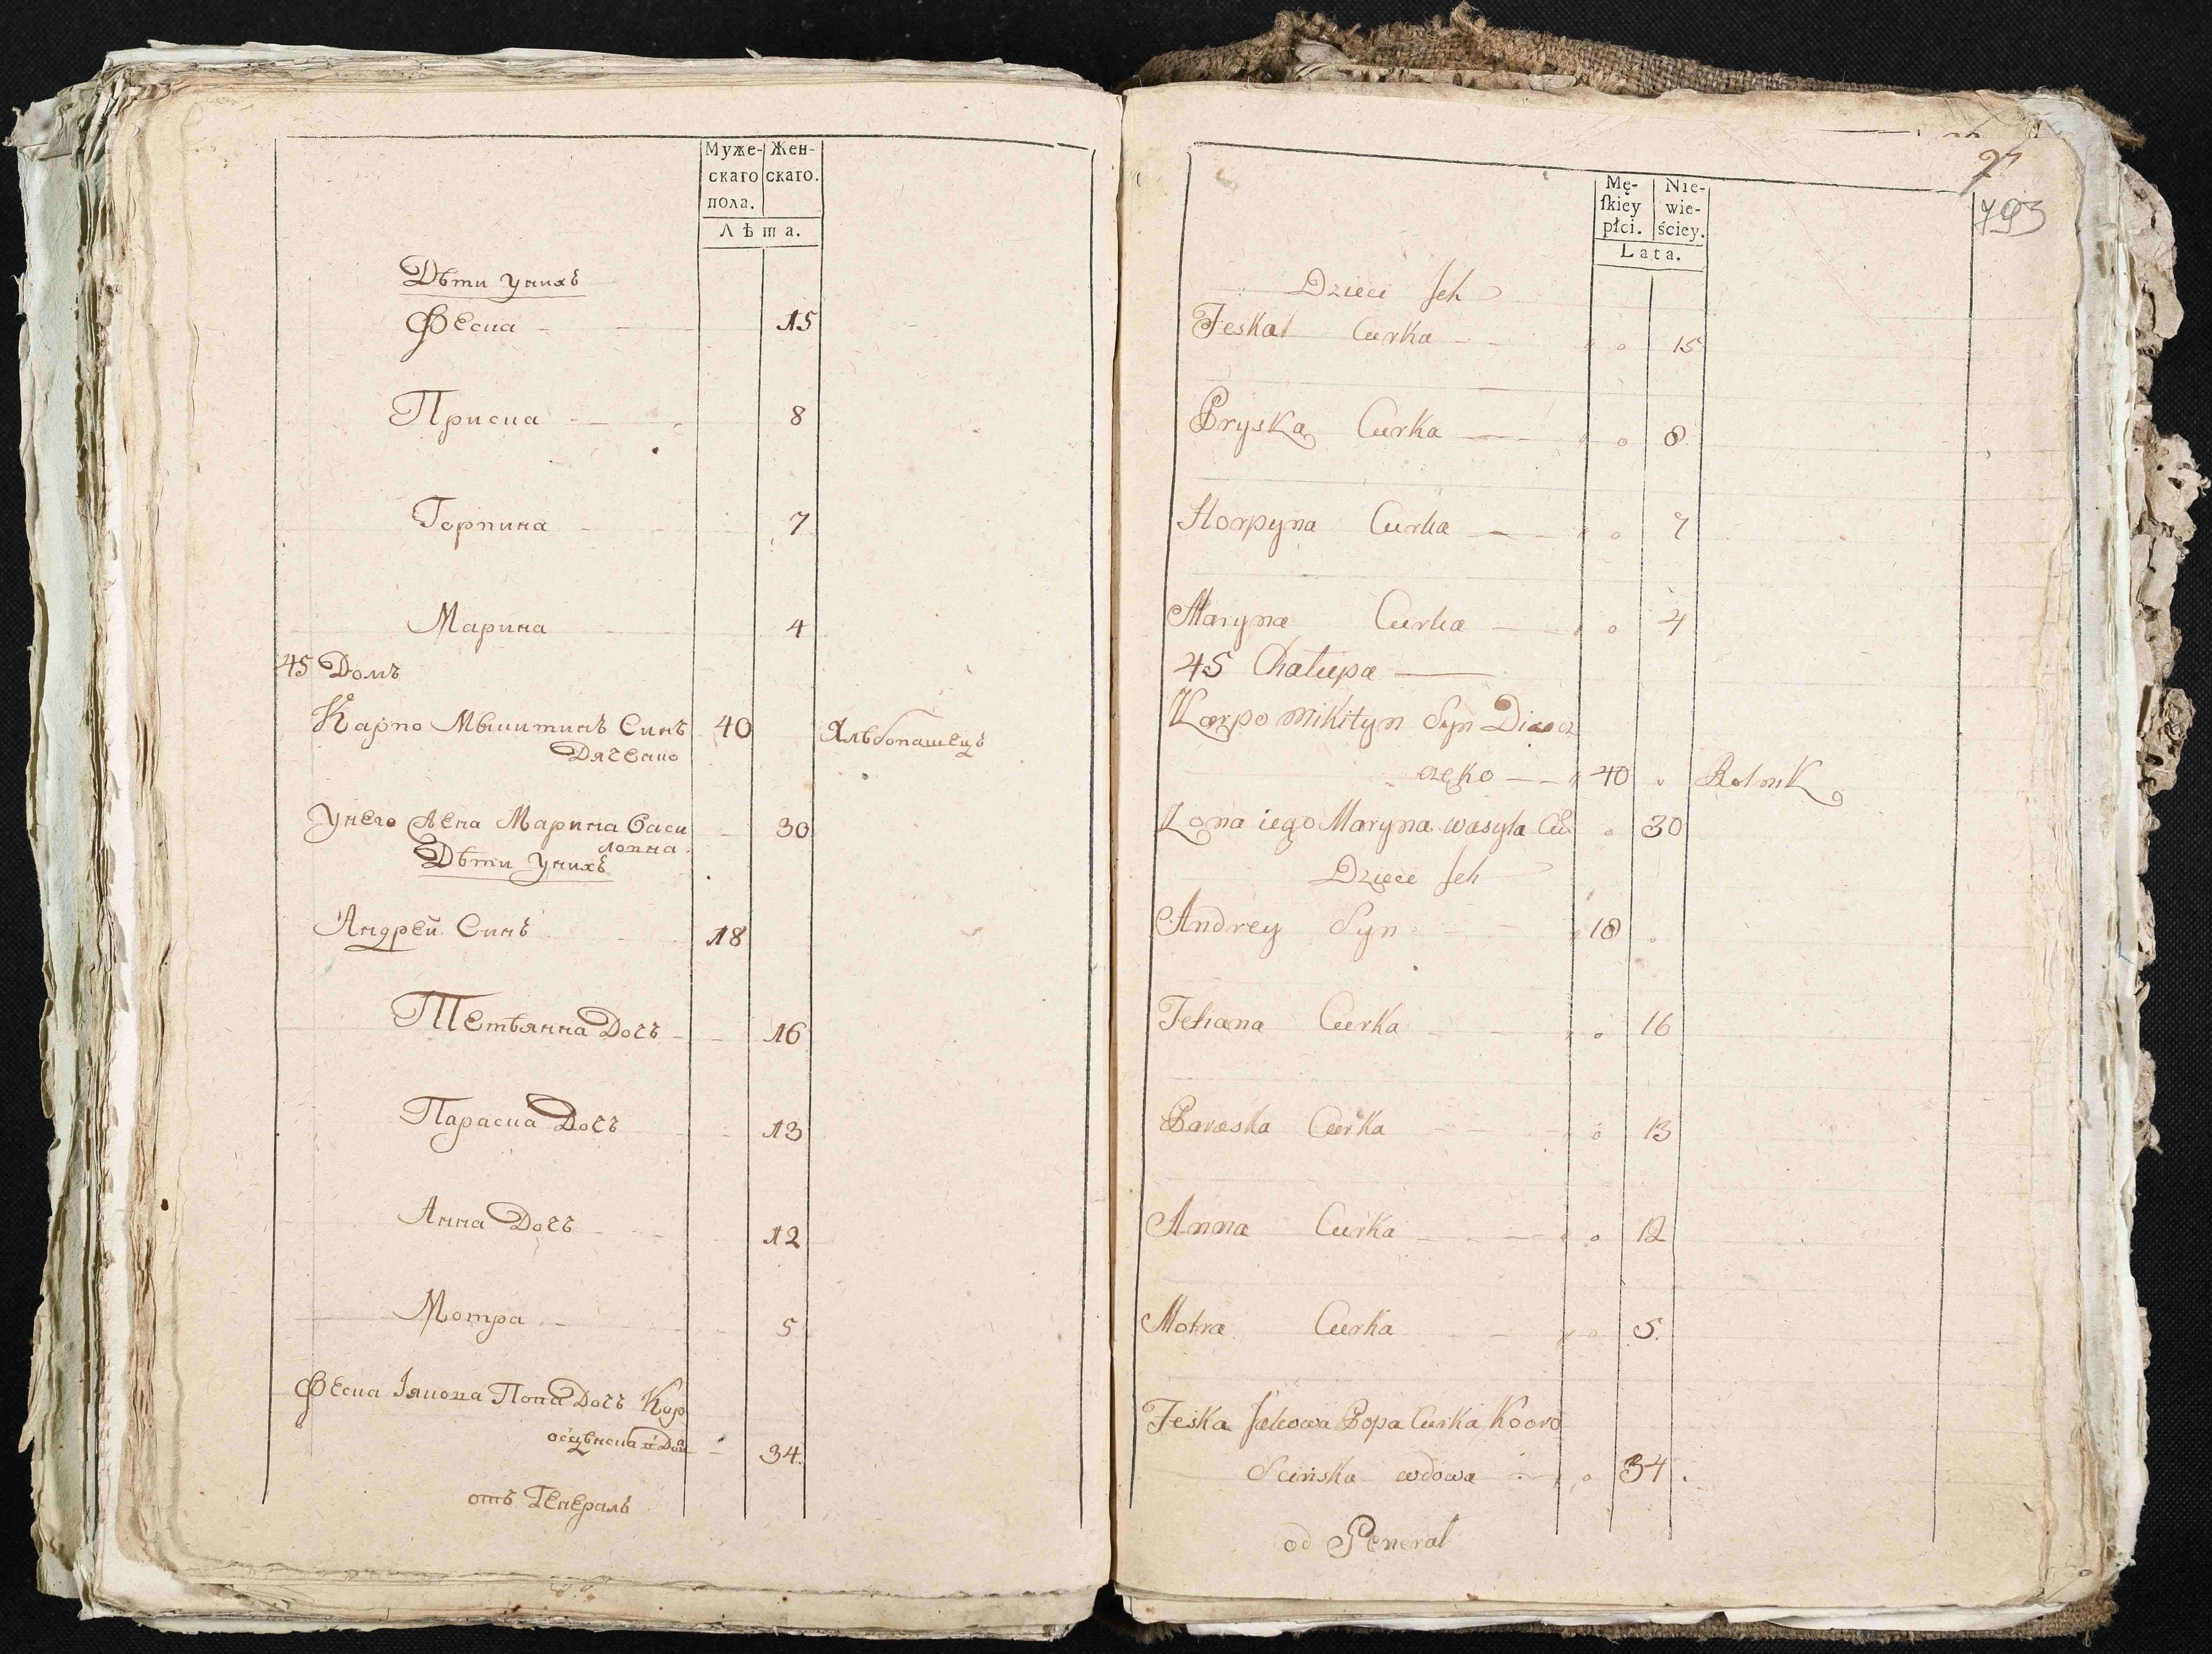 Муже- Жен-
скаго скаго.
пола.
Лѣта.
Дѣти унихъ
Феска 15
Приска 8
Горпина 7
Марина 4
45 Домъ
Карпо Мыкитинъ Синъ 40 Хлѣбопашецъ
Дяченко
Унего Жена Марина Васи 30
лювна
Дѣти Унихъ
Андрей Синъ 18
Тетьянна Дочъ 16
Параска Дочъ 13
Анна Дочъ 12
Мотра 5
Феска Іякова Попа Дочъ Кор
34
отъ Генералъ
27
793
Mę- Nie-
ſkiey wie-
płci. ściey.
Lata.
Dzieci Jch
Feska Curka 15
Pryska Curka 8
Horpyna Curka 7
Maryna Curka 4
45 Chałupa
Karpo Mikityn Syn
częko 40 Rolnik
Zona iego Maryna wasyla Cu 30
Dzieci Jch
Andrey Syn 18
Tetiana Curka 16
Paraska Curka 13
Anna Curka 12
Motra Curka 5
Feska Jakowa Popa Curka Kooro
Scińska wdowa 34
od General